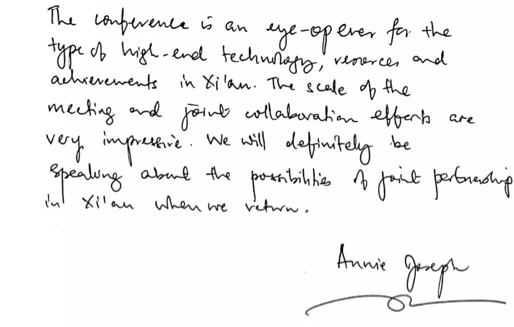 The conference is an eye-opener for the
type of high-end technology, resources and
achievements in Xi'an. The scale of the
meeting and joint collaboration efforts are
very impressive. We will definitely be
speaking about the possibilities of joint partnership
in Xi'an when we return.
Annie Joseph